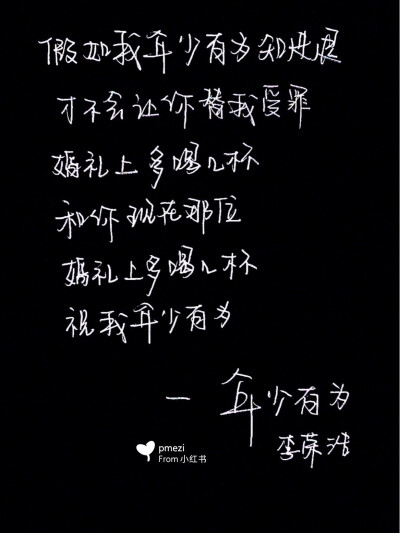 假如我年少有为知进退
才不会让你替我受罪
婚礼上多喝几杯
和你现在那位
婚礼上多喝几杯
祝我年少有为
— 年少有为
李荣浩
pmezi
From 小红书